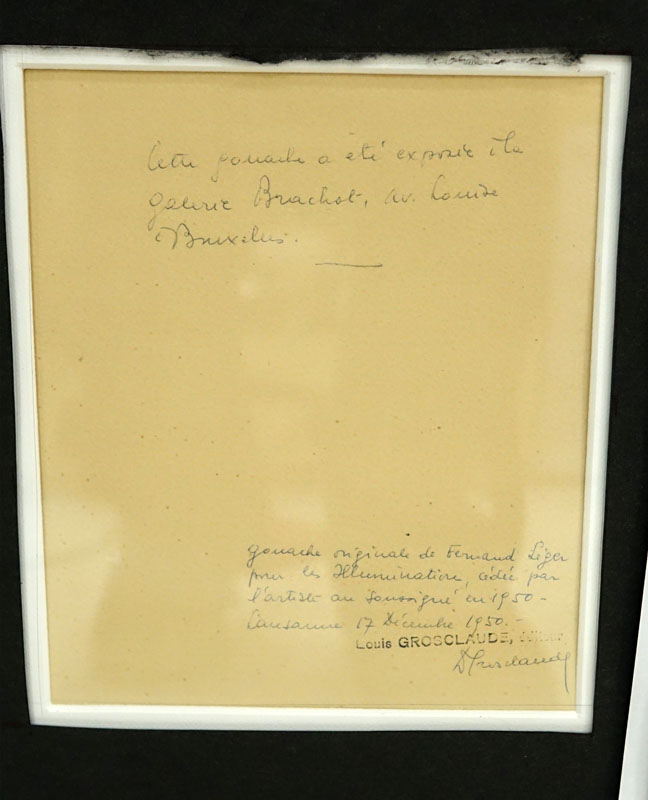 Cette gouache a été exposée à la
galerie Brachot, av. Louise
à Bruxelles.
gouache originale de Fernand Léger
pour les Illumination, cédée par
l'artiste au soussigné en 1950 -
Lausanne 17 Décembre 1950. -
Louis GROSCLAUDE,
LGrosclaude